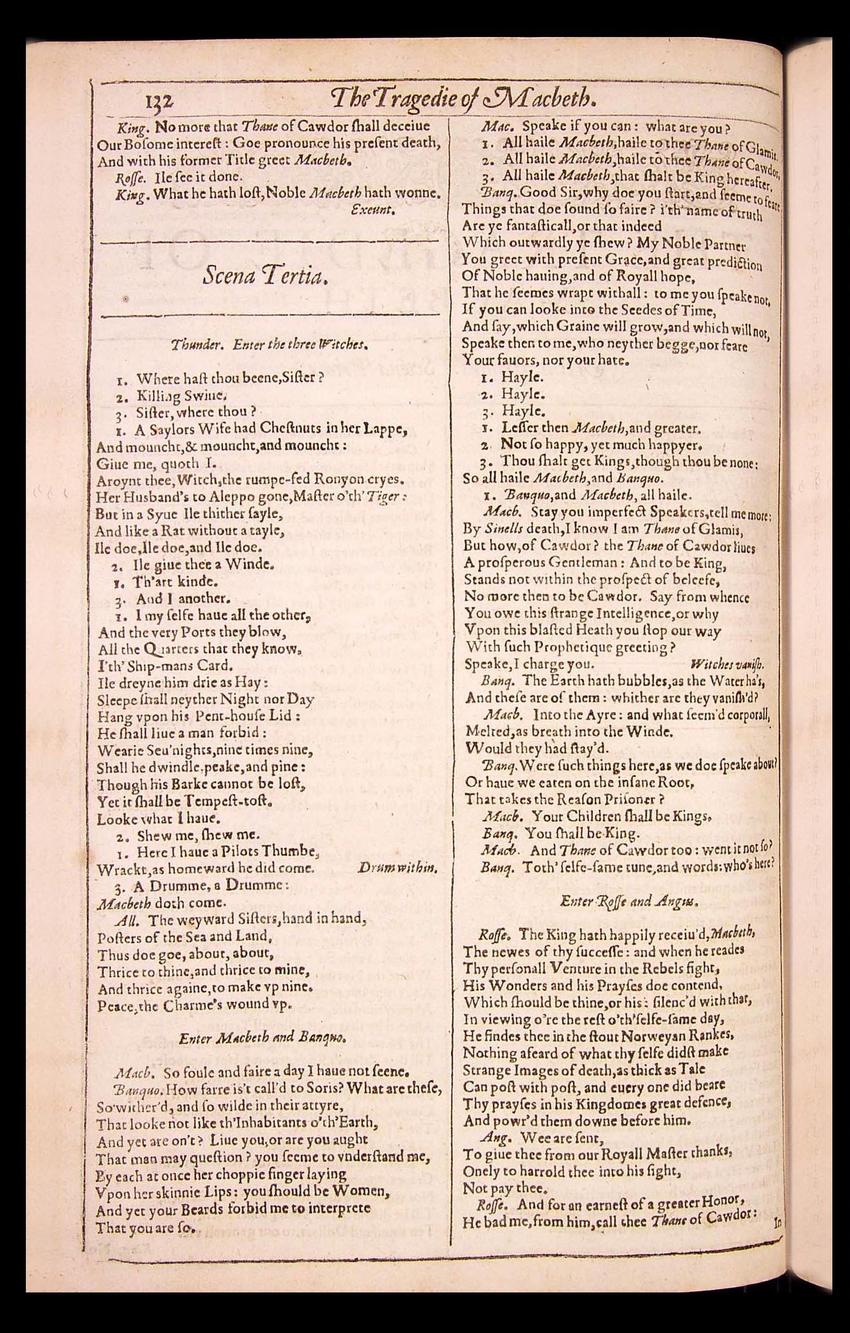 132
The Tragedie of Macbeth.
King. No more that Thane of Cawdor ſhall deceiue
Our Boſome intereſt : Goe pronounce his preſent death,
And with his former Title greet Macbeth.
Roſſe. Ile ſee it done.
King. What he hath loſt, Noble Macbeth hath wonne.
Exeunt.
Scena Tertia.
Thunder. Enter the three Witches.
1. Where haſt thou beene, Siſter ?
2. Killing Swine.
3. Siſter, where thou ?
1. A Saylors Wife had Cheſtnuts in her Lappe,
And mouncht, & mouncht, and mouncht :
Giue me, quoth I.
Aroynt thee, Witch, the rumpe-fed Ronyon cryes.
Her Husband's to Aleppo gone, Maſter o'th' Tiger :
But in a Syue Ile thither ſayle,
And like a Rat without a tayle,
Ile doe, Ile doe, and Ile doe.
2. Ile giue thee a Winde.
1. Th'art kinde.
3. And I another.
1. I my ſelfe haue all the other,
And the very Ports they blow,
All the Quarters that they know,
I'th' Ship-mans Card.
Ile dreyne him drie as Hay :
Sleepe ſhall neyther Night nor Day
Hang vpon his Pent-houſe Lid :
He ſhall liue a man forbid :
Wearie Seu'nights, nine times nine,
Shall he dwindle, peake, and pine :
Though his Barke cannot be loſt,
Yet it ſhall be Tempeſt-toſt.
Looke what I haue.
2. Shew me, ſhew me.
1. Here I haue a Pilots Thumbe,
Wrackt, as homeward he did come. Drum within.
3. A Drumme, a Drumme :
Macbeth doth come.
All. The weyward Siſters, hand in hand,
Poſters of the Sea and Land,
Thus doe goe, about, about,
Thrice to thine, and thrice to mine,
And thrice againe, to make vp nine.
Peace, the Charme's wound vp.
Enter Macbeth and Banquo.
Macb. So foule and faire a day I haue not ſeene.
Banquo. How farre is't call'd to Soris? What are theſe,
So wither'd, and ſo wilde in their attyre,
That looke not like th'Inhabitants o'th'Earth,
And yet are on't ? Liue you, or are you aught
That man may queſtion ? you ſeeme to vnderſtand me,
By each at once her choppie finger laying
Vpon her skinnie Lips : you ſhould be Women,
And yet your Beards forbid me to interprete
That you are ſo.
Mac. Speake if you can : what are you ?
1. All haile Macbeth, haile to thee Thane of Glamis.
2. All haile Macbeth, haile to thee Thane of Cawdor.
3. All haile Macbeth, that ſhalt be King hereafter.
Banq. Good Sir, why doe you ſtart, and ſeeme to feare
Things that doe ſound ſo faire ? i'th' name of truth
Are ye fantaſticall, or that indeed
Which outwardly ye ſhew ? My Noble Partner
You greet with preſent Grace, and great prediction
Of Noble hauing, and of Royall hope,
That he ſeemes wrapt withall : to me you ſpeake not,
If you can looke into the Seedes of Time,
And ſay, which Graine will grow, and which will not,
Speake then to me, who neyther begge, nor feare
Your fauors, nor your hate.
1. Hayle.
2. Hayle.
3. Hayle.
1. Leſſer then Macbeth, and greater.
2. Not ſo happy, yet much happyer.
3. Thou ſhalt get Kings, though thou be none :
So all haile Macbeth, and Banquo.
1. Banquo, and Macbeth, all haile.
Macb. Stay you imperfect Speakers, tell me more :
By Sinells death, I know I am Thane of Glamis,
But how, of Cawdor ? the Thane of Cawdor liues
A proſperous Gentleman : And to be King,
Stands not within the proſpect of beleefe,
No more then to be Cawdor. Say from whence
You owe this ſtrange Intelligence, or why
Vpon this blaſted Heath you ſtop our way
With ſuch Prophetique greeting ?
Speake, I charge you. Witches vaniſh.
Banq. The Earth hath bubbles, as the Water ha's,
And theſe are of them : whither are they vaniſh'd ?
Macb. Into the Ayre : and what ſeem'd corporall,
Melted, as breath into the Winde.
Would they had ſtay'd.
Banq. Were ſuch things here, as we doe ſpeake about ?
Or haue we eaten on the inſane Root,
That takes the Reaſon Priſoner ?
Macb. Your Children ſhall be Kings.
Banq. You ſhall be King.
Macb. And Thane of Cawdor too : went it not ſo ?
Banq. Toth' ſelfe-ſame tune, and words : who's here ?
Enter Roſſe and Angus.
Roſſe. The King hath happily receiu'd, Macbeth,
The newes of thy ſucceſſe : and when he reades
Thy perſonall Venture in the Rebels ſight,
His Wonders and his Prayſes doe contend,
Which ſhould be thine, or his : ſilenc'd with that,
In viewing o're the reſt o'th'ſelfe-ſame day,
He findes thee in the ſtout Norweyan Rankes,
Nothing afeard of what thy ſelfe didſt make
Strange Images of death, as thick as Tale
Can poſt with poſt, and euery one did beare
Thy prayſes in his Kingdomes great defence,
And powr'd them downe before him.
Ang. Wee are ſent,
To giue thee from our Royall Maſter thanks,
Onely to harrold thee into his ſight,
Not pay thee.
Roſſe. And for an earneſt of a greater Honor,
He bad me, from him, call thee Thane of Cawdor :
In